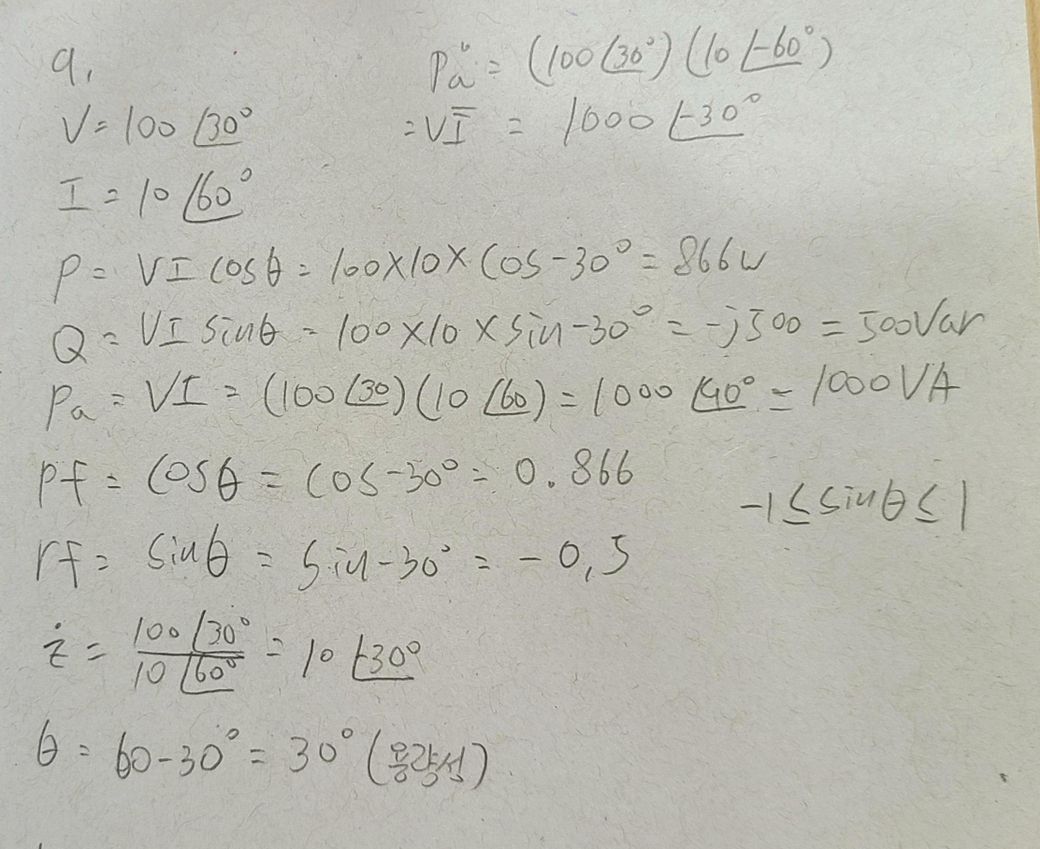 9.
V = 100 ∠30°
I = 10 ∠60°
Pȧ = (100 ∠30°)(10 ∠-60°)
= VI̅ = 1000 ∠-30°
P = VI cosθ = 100×10× cos-30° = 866w
Q = VI sinθ = 100×10× sin-30° = -j500 = 500Var
Pa = VI = (100 ∠30)(10 ∠60) = 1000 ∠90° = 1000VA
Pf = cosθ = cos-30° = 0.866
-1 ≤ sinθ ≤ 1
rf = sinθ = sin-30° = -0,5
ż = 100 ∠30° / 10 ∠60° = 10 ∠-30°
θ = 60-30° = 30° (용량성)